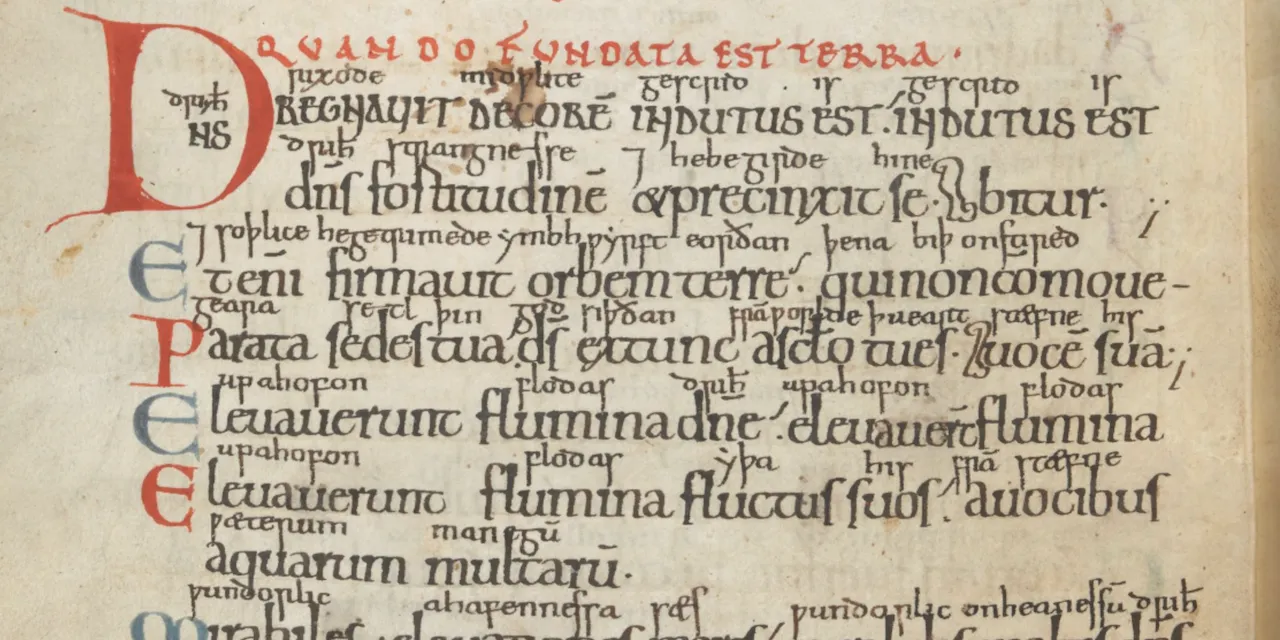 QUANDO FUNDATA EST TERRA·
rixode midwlite gescrid is gescrid is
driħt
DNS REGNAUIT DECORĒ INDUTUS EST· INDUTUS EST
driħt strangnesse ⁊ hebegirde hine
dn̄s fortitudinē & precinxit se· bitur·
⁊ soþlice hegetrimede ymbhpyrft eorðan þena biþ onstired
Eteni̅ firmauit orbem terre· quinoncomoue-
geara setl þin god siþðan þueart stæfne his
Parata sedestua ds̄ extunc asclo tues· uocē suā·
upahofon flodas driħt upahofon flodas
Eleuauerunt flumina dn̄e· eleuauer̄t flumina
upahofon flodas yþa his frā stæfne
Eleuauerunt flumina fluctus suos· auocibus
wæterum manegū
aquarum multarū·
wundorlic ahafennessa sæs wundorlic onheanessū driħt